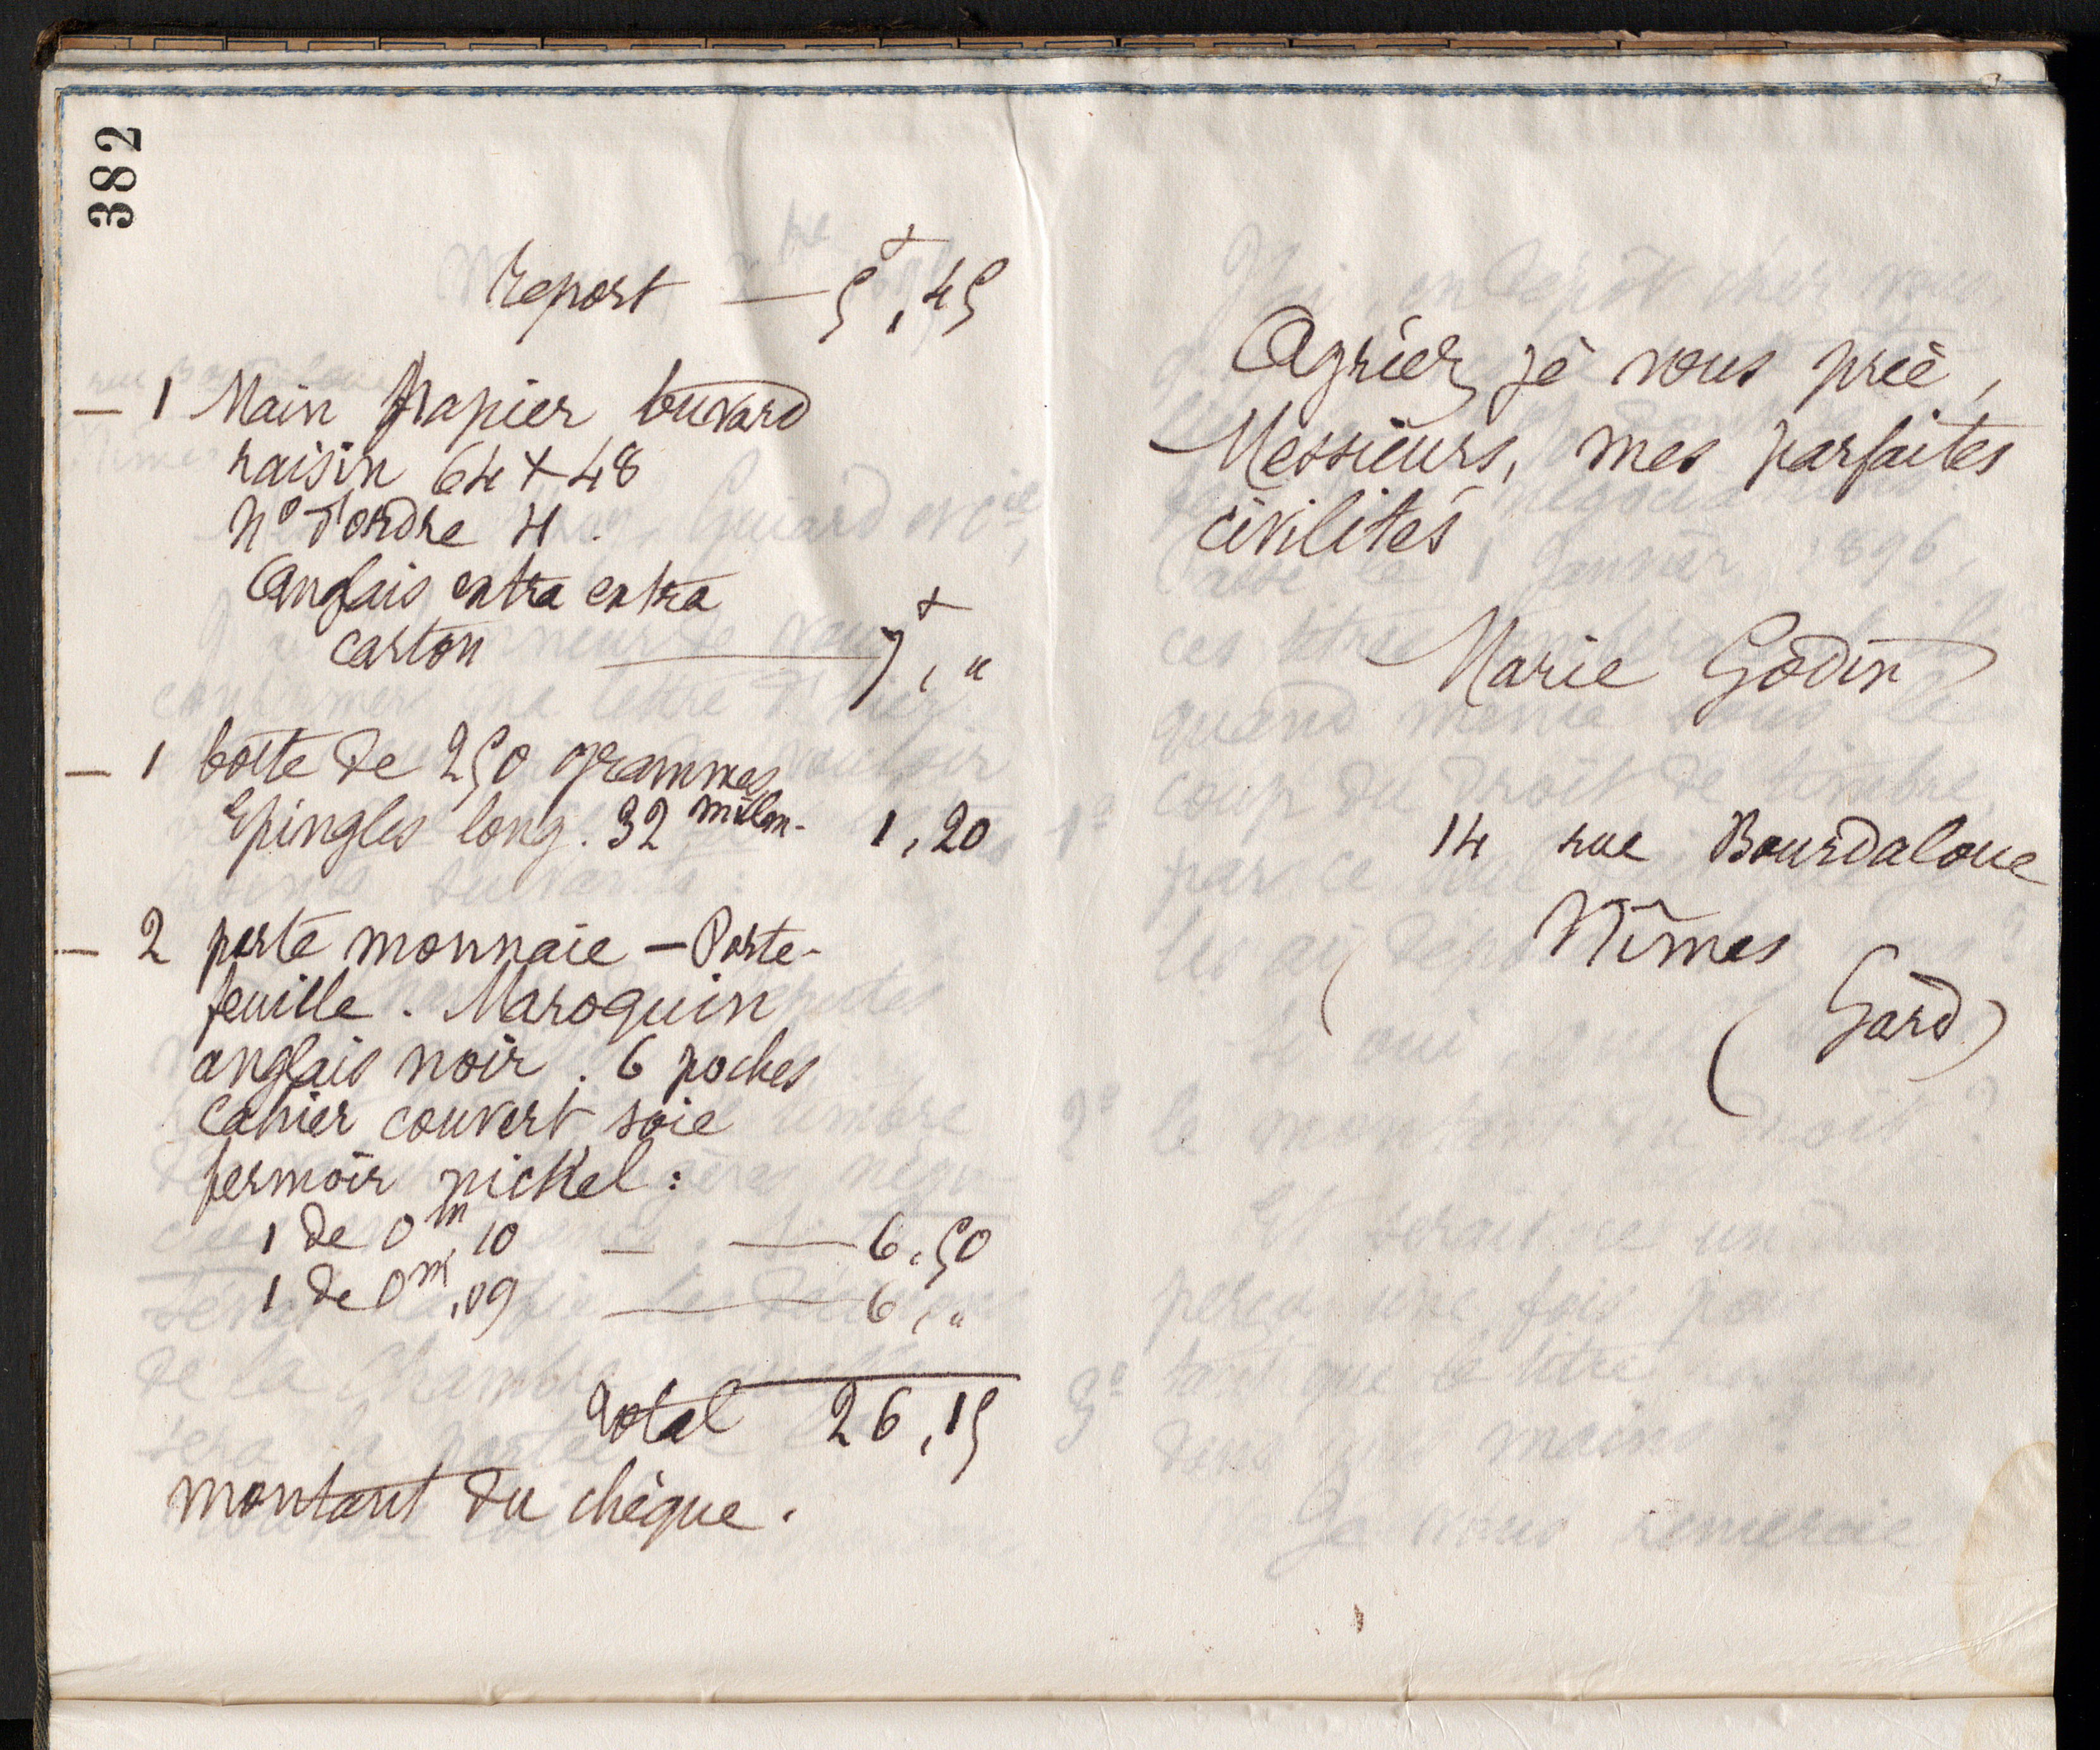 382
Report — 5f,45
— 1 Main papier buvard
raisin 64 + 48
No d'ordre 4.
Anglais extra extra
carton — 7f,"
— 1 boîte de 250 grammes
Epingles long. 32 millm. 1,20
— 2 porte monnaie — Porte-
feuille. Maroquin
anglais noir. 6 poches
Cahier couvert soie
fermoir nickel :
1 de 0m,10 — — 6,50
1 de 0m,09 — 6,"
Total 26,15
montant du chèque.
Agréez, je vous prie,
Messieurs, mes parfaites
civilités
Marie Godin
14 rue Bourdaloue
Nîmes
(Gard)